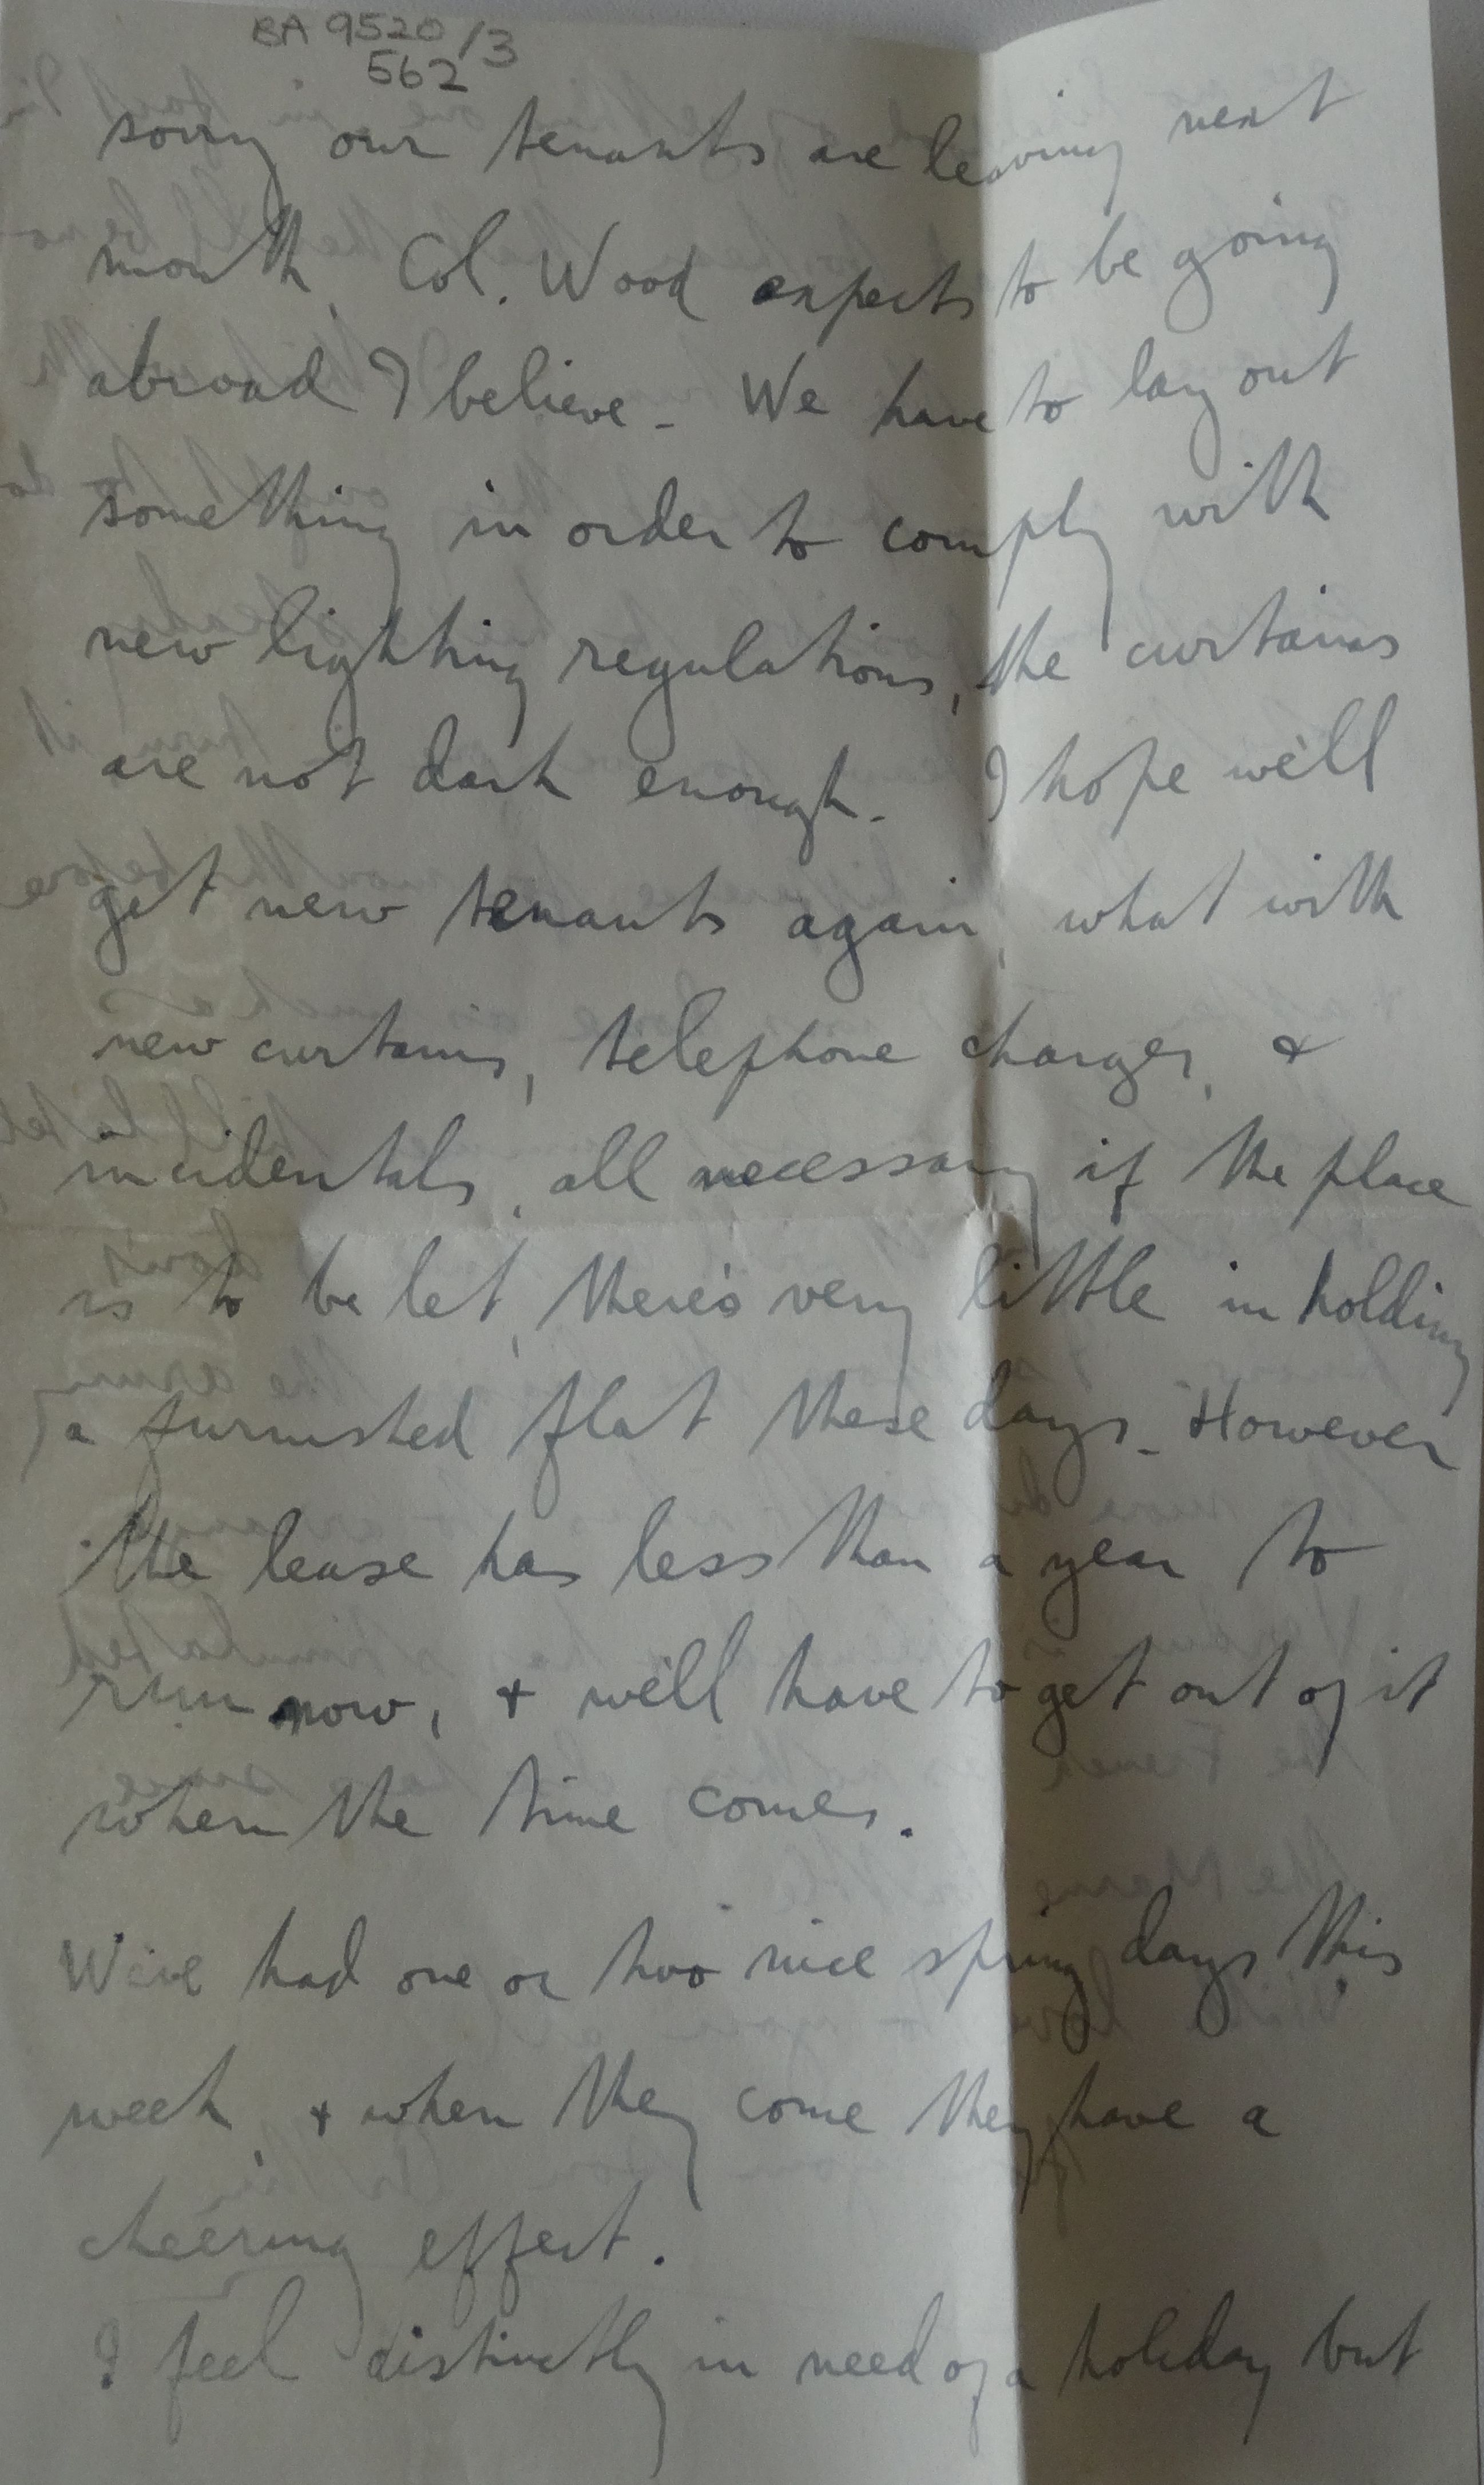 BA 9520/3
562
sorry our tenants are leaving next
month, Col. Wood expects to be going
abroad I believe - We have to lay out
something in order to comply with
new lighting regulations, the curtains
are not dark enough - I hope we'll
get new tenants again, what with
new curtains, telephone charges, &
incidentals, all necessary if the place
is to be let, there's very little in holding
a furnished flat these days - However
the lease has less than a year to
run now, & we'll have to get out of it
when the time comes.
We've had one or two nice spring days this
week, & when they come they have a
cheering effect.
I feel distinctly in need of a holiday but